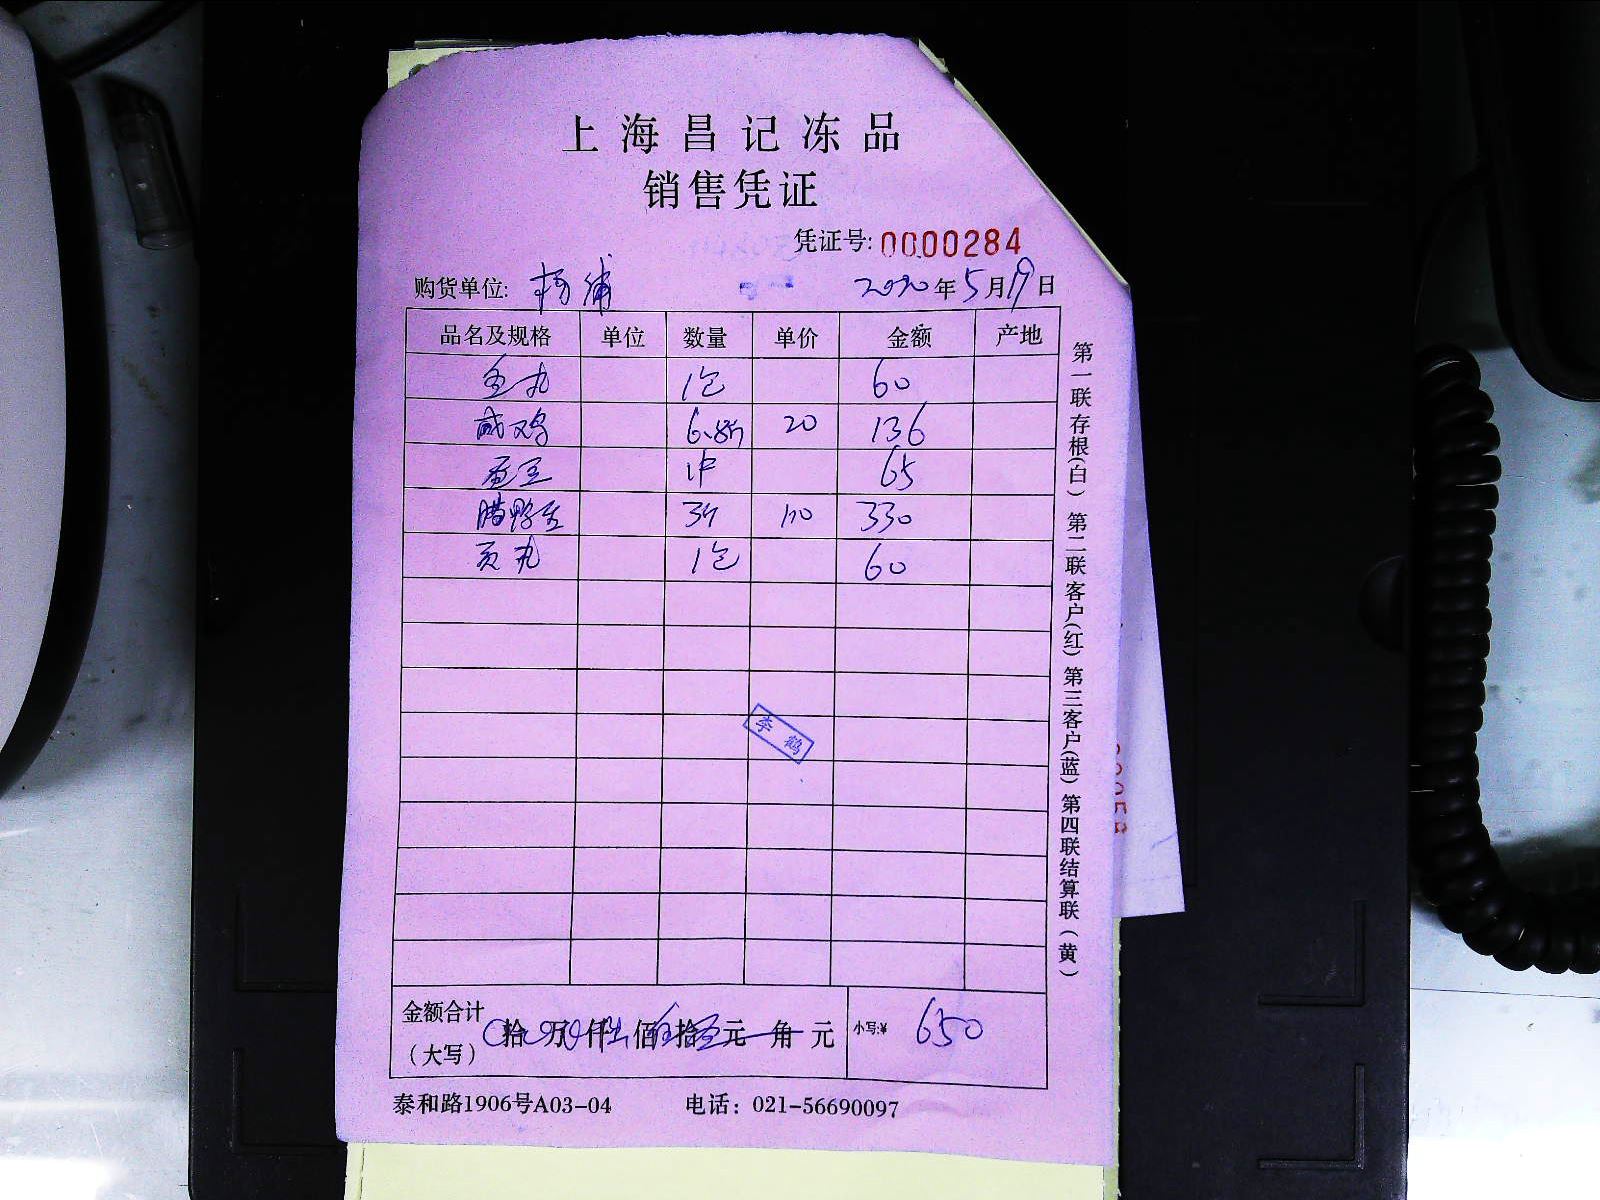 上海昌记冻品
销售凭证
凭证号: 0000284
购货单位: 杨浦 2020年5月19日
品名及规格 单位 数量 单价 金额 产地
鱼丸 1包 60
咸鸡 6.8斤 20 136
65
腊鸭 3斤 110 330
贡丸 1包 60
李鹤
金额合计 拾 万 仟 佰 拾 元 角 元 小写:¥ 650
(大写)
泰和路1906号A03-04 电话: 021-56690097
第一联存根(白) 第二联客户(红) 第三客户(蓝) 第四联结算联(黄)